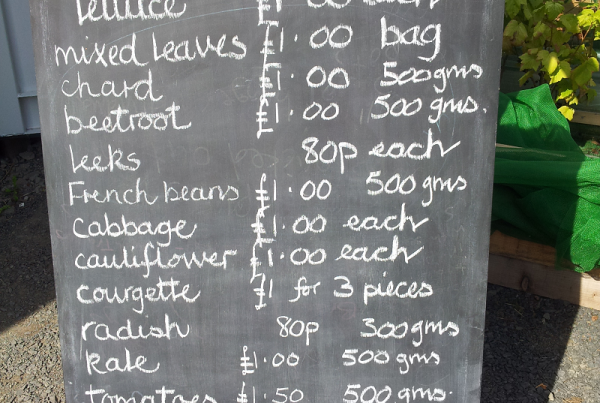 lettuce £1.00 each
mixed leaves £1.00 bag
chard £1.00 500gms
beetroot £1.00 500gms.
leeks 80p each
French beans £1.00 500gms
cabbage £1.00 each
cauliflower £1.00 each
courgette £1 for 3 pieces
radish 80p 300gms
Kale £1.00 500gms
tomatoes £1.50 500gms.